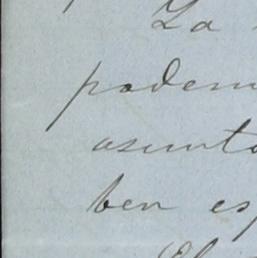 La
podem
asunto
ben es